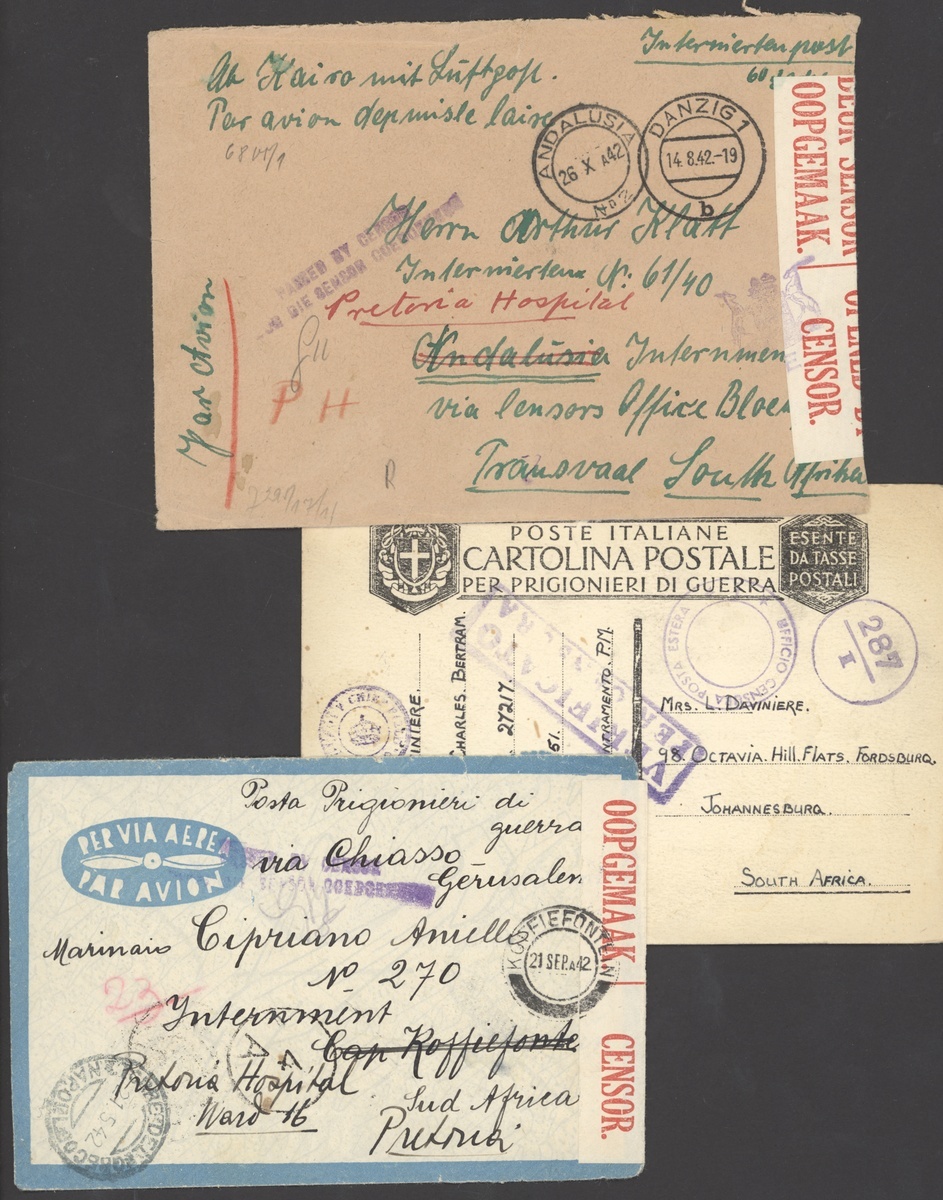 Internierten post
Ab Kairo mit Luftpost.
Par avion
ANDALUSIA
26 X A42
DANZIG 1
14.8.42.-19
b
DEUR SENSOR
OOPGEMAAK.
OPENED BY
CENSOR.
PASSED BY CENSOR
DEUR DIE SENSOR GOEDGEKEUR
Herrn Arthur Klatt
Internierten Nº. 61/40
Pretoria Hospital
Andalusia Internmen
via Censors Office Bloem
Transvaal South Afrika
Par Avion
P H
R
POSTE ITALIANE
CARTOLINA POSTALE
PER PRIGIONIERI DI GUERRA
ESENTE
DA TASSE
POSTALI
UFFICIO CENSURA POSTA ESTERA
287
II
VERIFICATO
INIERE.
CHARLES. BERTRAM.
27217.
MRS. L. DAVINIERE.
98. OCTAVIA. HILL. FLATS. FORDSBURG.
JOHANNESBURG.
SOUTH AFRICA.
PER VIA AEREA
PAR AVION
Posta Prigionieri di
guerra
via Chiasso
Gerusalem
Marinaio Cipriano Aniello
Nº 270
Internment
Cap Koffiefonte
Pretoria Hospital
Ward 16
Sud Africa
Pretoria
KOFFIEFONTEIN
21 SEP. A42
OOPGEMAAK.
CENSOR.
23
4
A
5.42